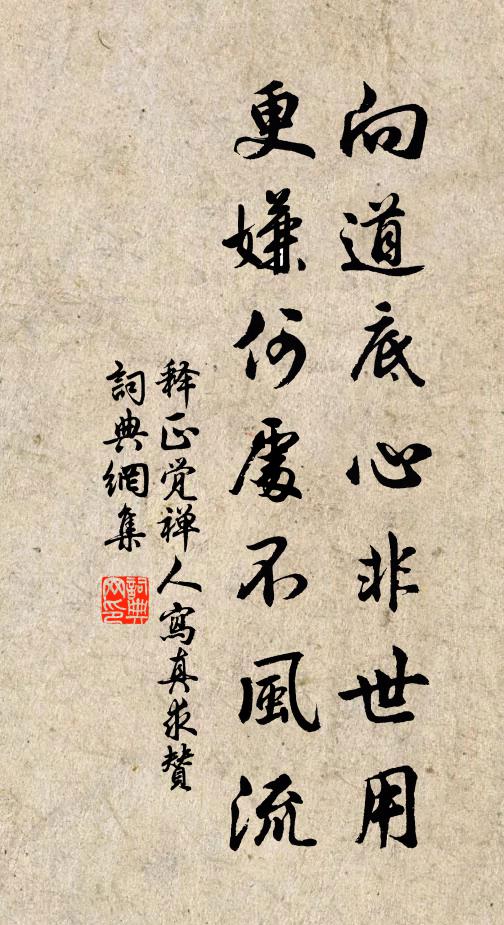 向道底心非世用
更嫌何處不風流
释正觉禅人寫真求賛
詞典網集
詞典
网印